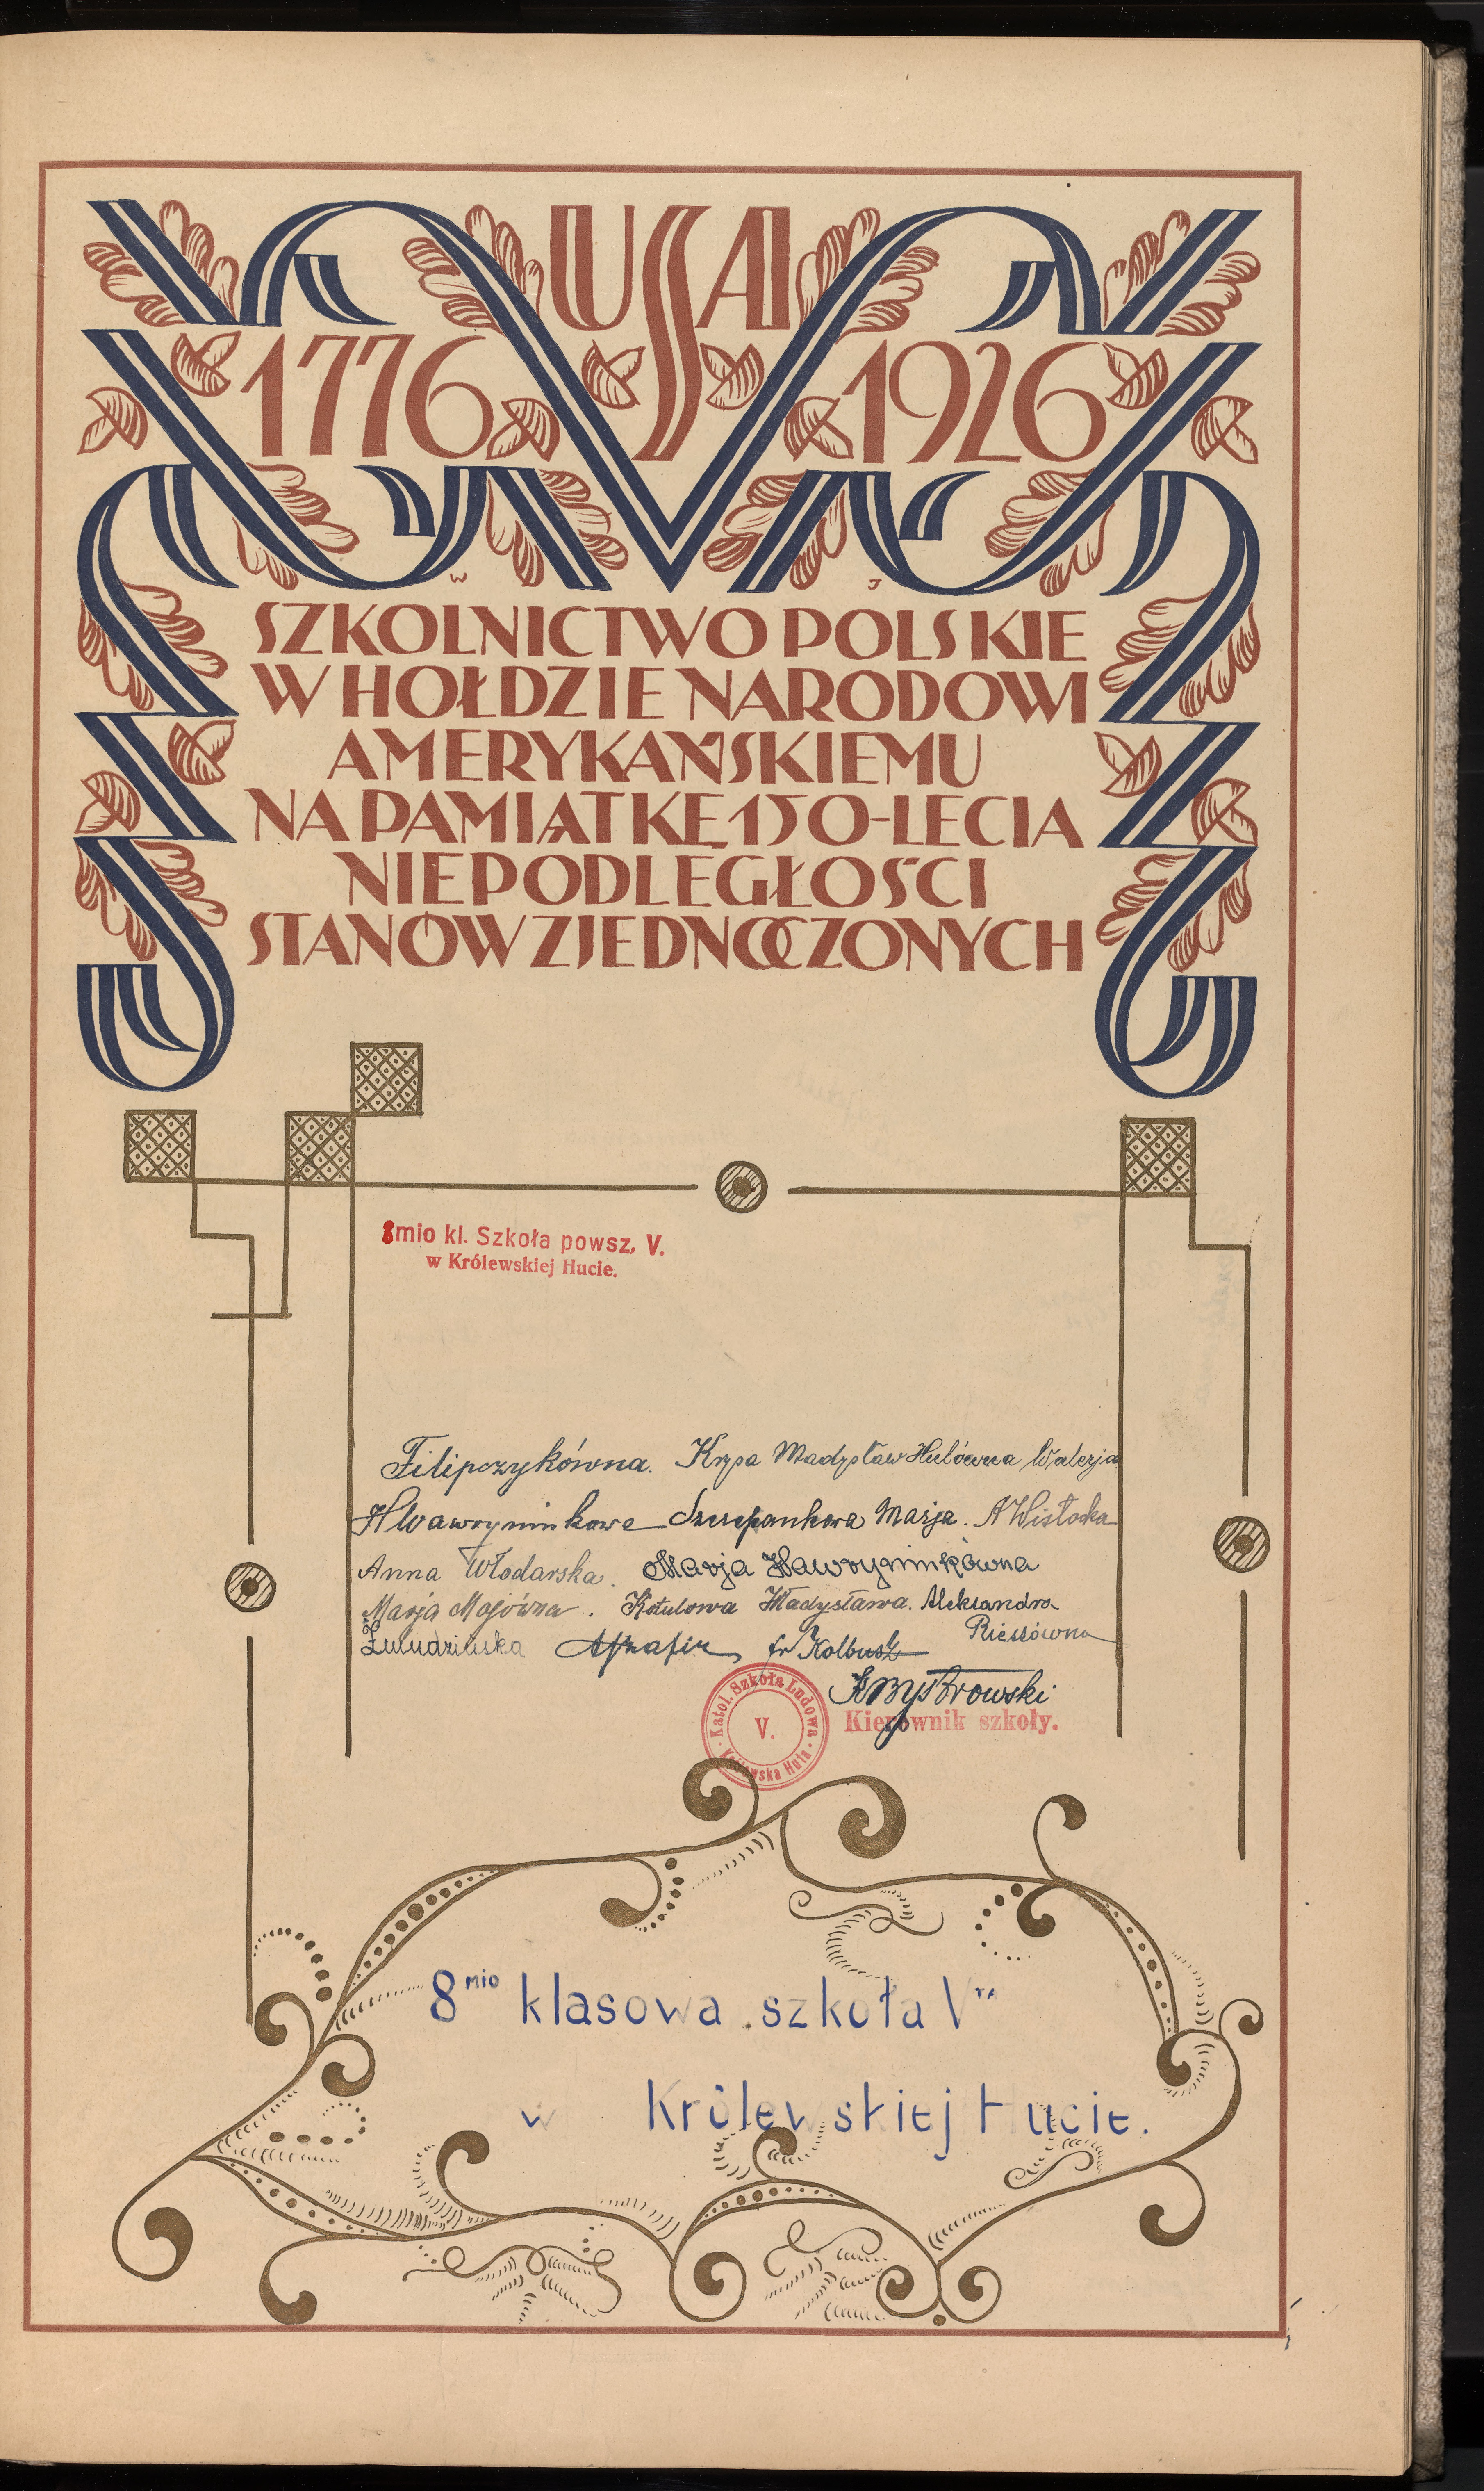 USA
1776 1926
W J
SZKOLNICTWO POLSKIE
W HOŁDZIE NARODOWI
AMERYKAŃSKIEMU
NA PAMIĄTKĘ 150-LECIA
NIEPODLEGŁOŚCI
STANÓW ZJEDNOCZONYCH
8mio kl. Szkoła powsz. V.
w Królewskiej Hucie.
Filipczykówna. Krysa Władysław Hulówna Walerja
Szczepankowa Marja. A Wisłocka
Anna Włodarska. Marja Wawrzyninkówna
Marja Mosówna. Kotulowa Władysława. Aleksandra
Riessówna
fr Kolbusz
KBystrowski
Kierownik szkoły.
Katol. Szkoła Ludowa
V.
Królewska Huta
8mio klasowa szkoła Vta
w Królewskiej Hucie.